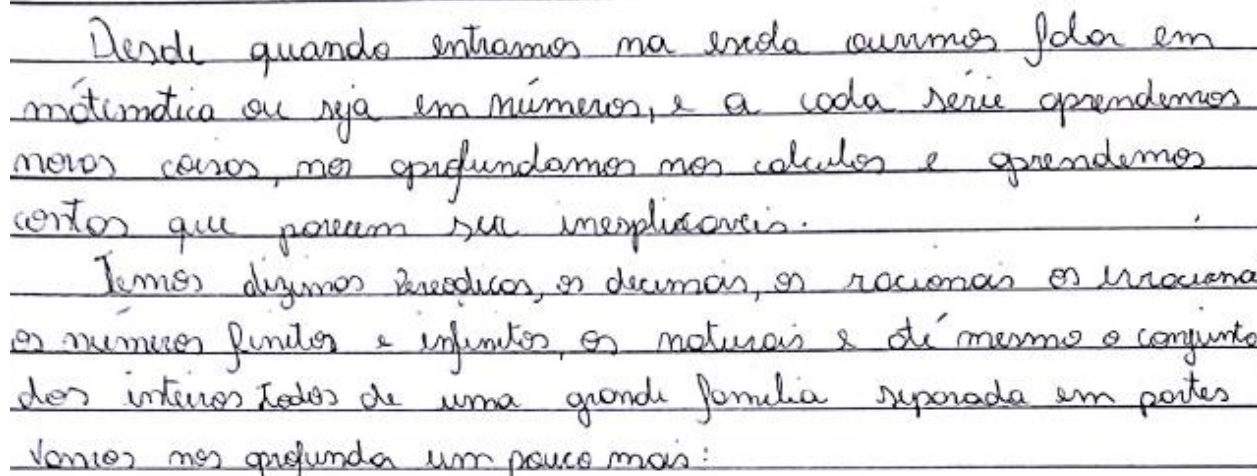 Desde quando entramos na escola ouvimos falar em
mátematica ou seja em números, e a cada série aprendemos
novas coisas, nos aprofundamos nos calculos e aprendemos
contas que parecem ser inexplicaveis.
Temos dizimas Pereodicas, os decimais, os racionais os irraciona
os números finitos e infinitos, os naturais e até mesmo o conjunto
dos inteiros todos de uma grande familia separada em partes
Vamos nos aprofunda um pouco mais: